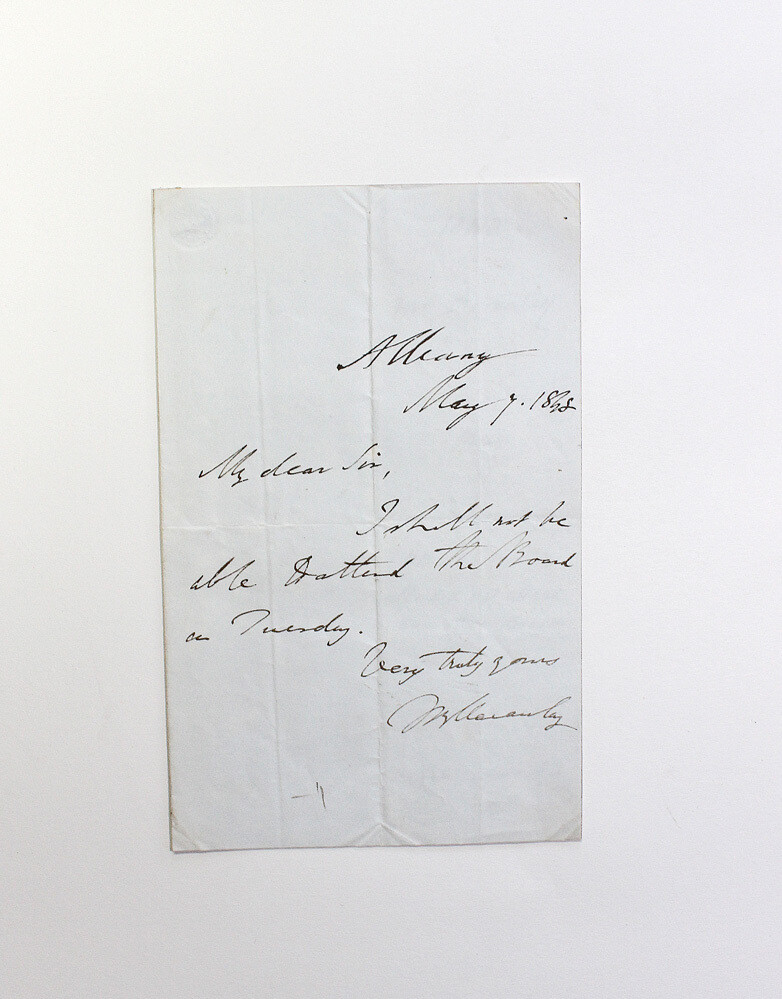 Albany
May 7. 1848
My dear Sir,
I shall not be
able to attend the Board
on Tuesday.
Very truly yours
TBMacaulay